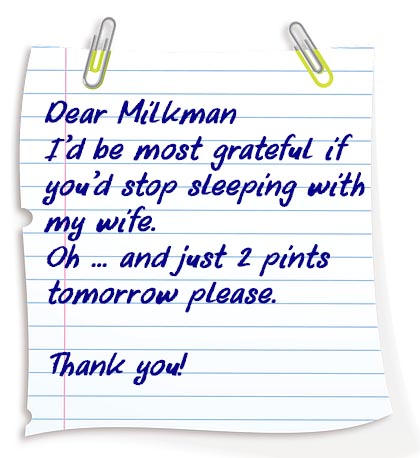 Dear Milkman
I'd be most grateful if
you'd stop sleeping with
my wife.
Oh ... and just 2 pints
tomorrow please.
Thank you!